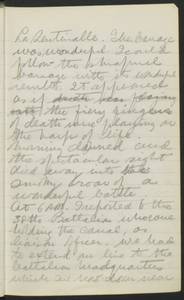 La Sentinelle. The barrage
was wonderful. I could
follow the shrapnel
barrage with its wonderful
results. It appeared
as if death was playing
the fiery fingers
of death were playing on
the harp of life.
Morning dawned and
the spectacular sight
died away into the
smoky broom of a
wonderful battle.
At 6 AM. I reported to the
38th Battalion who were
along the Canal, as
liaison officer. We had
to extend our line to the
Battalion Headquarters
which was down near